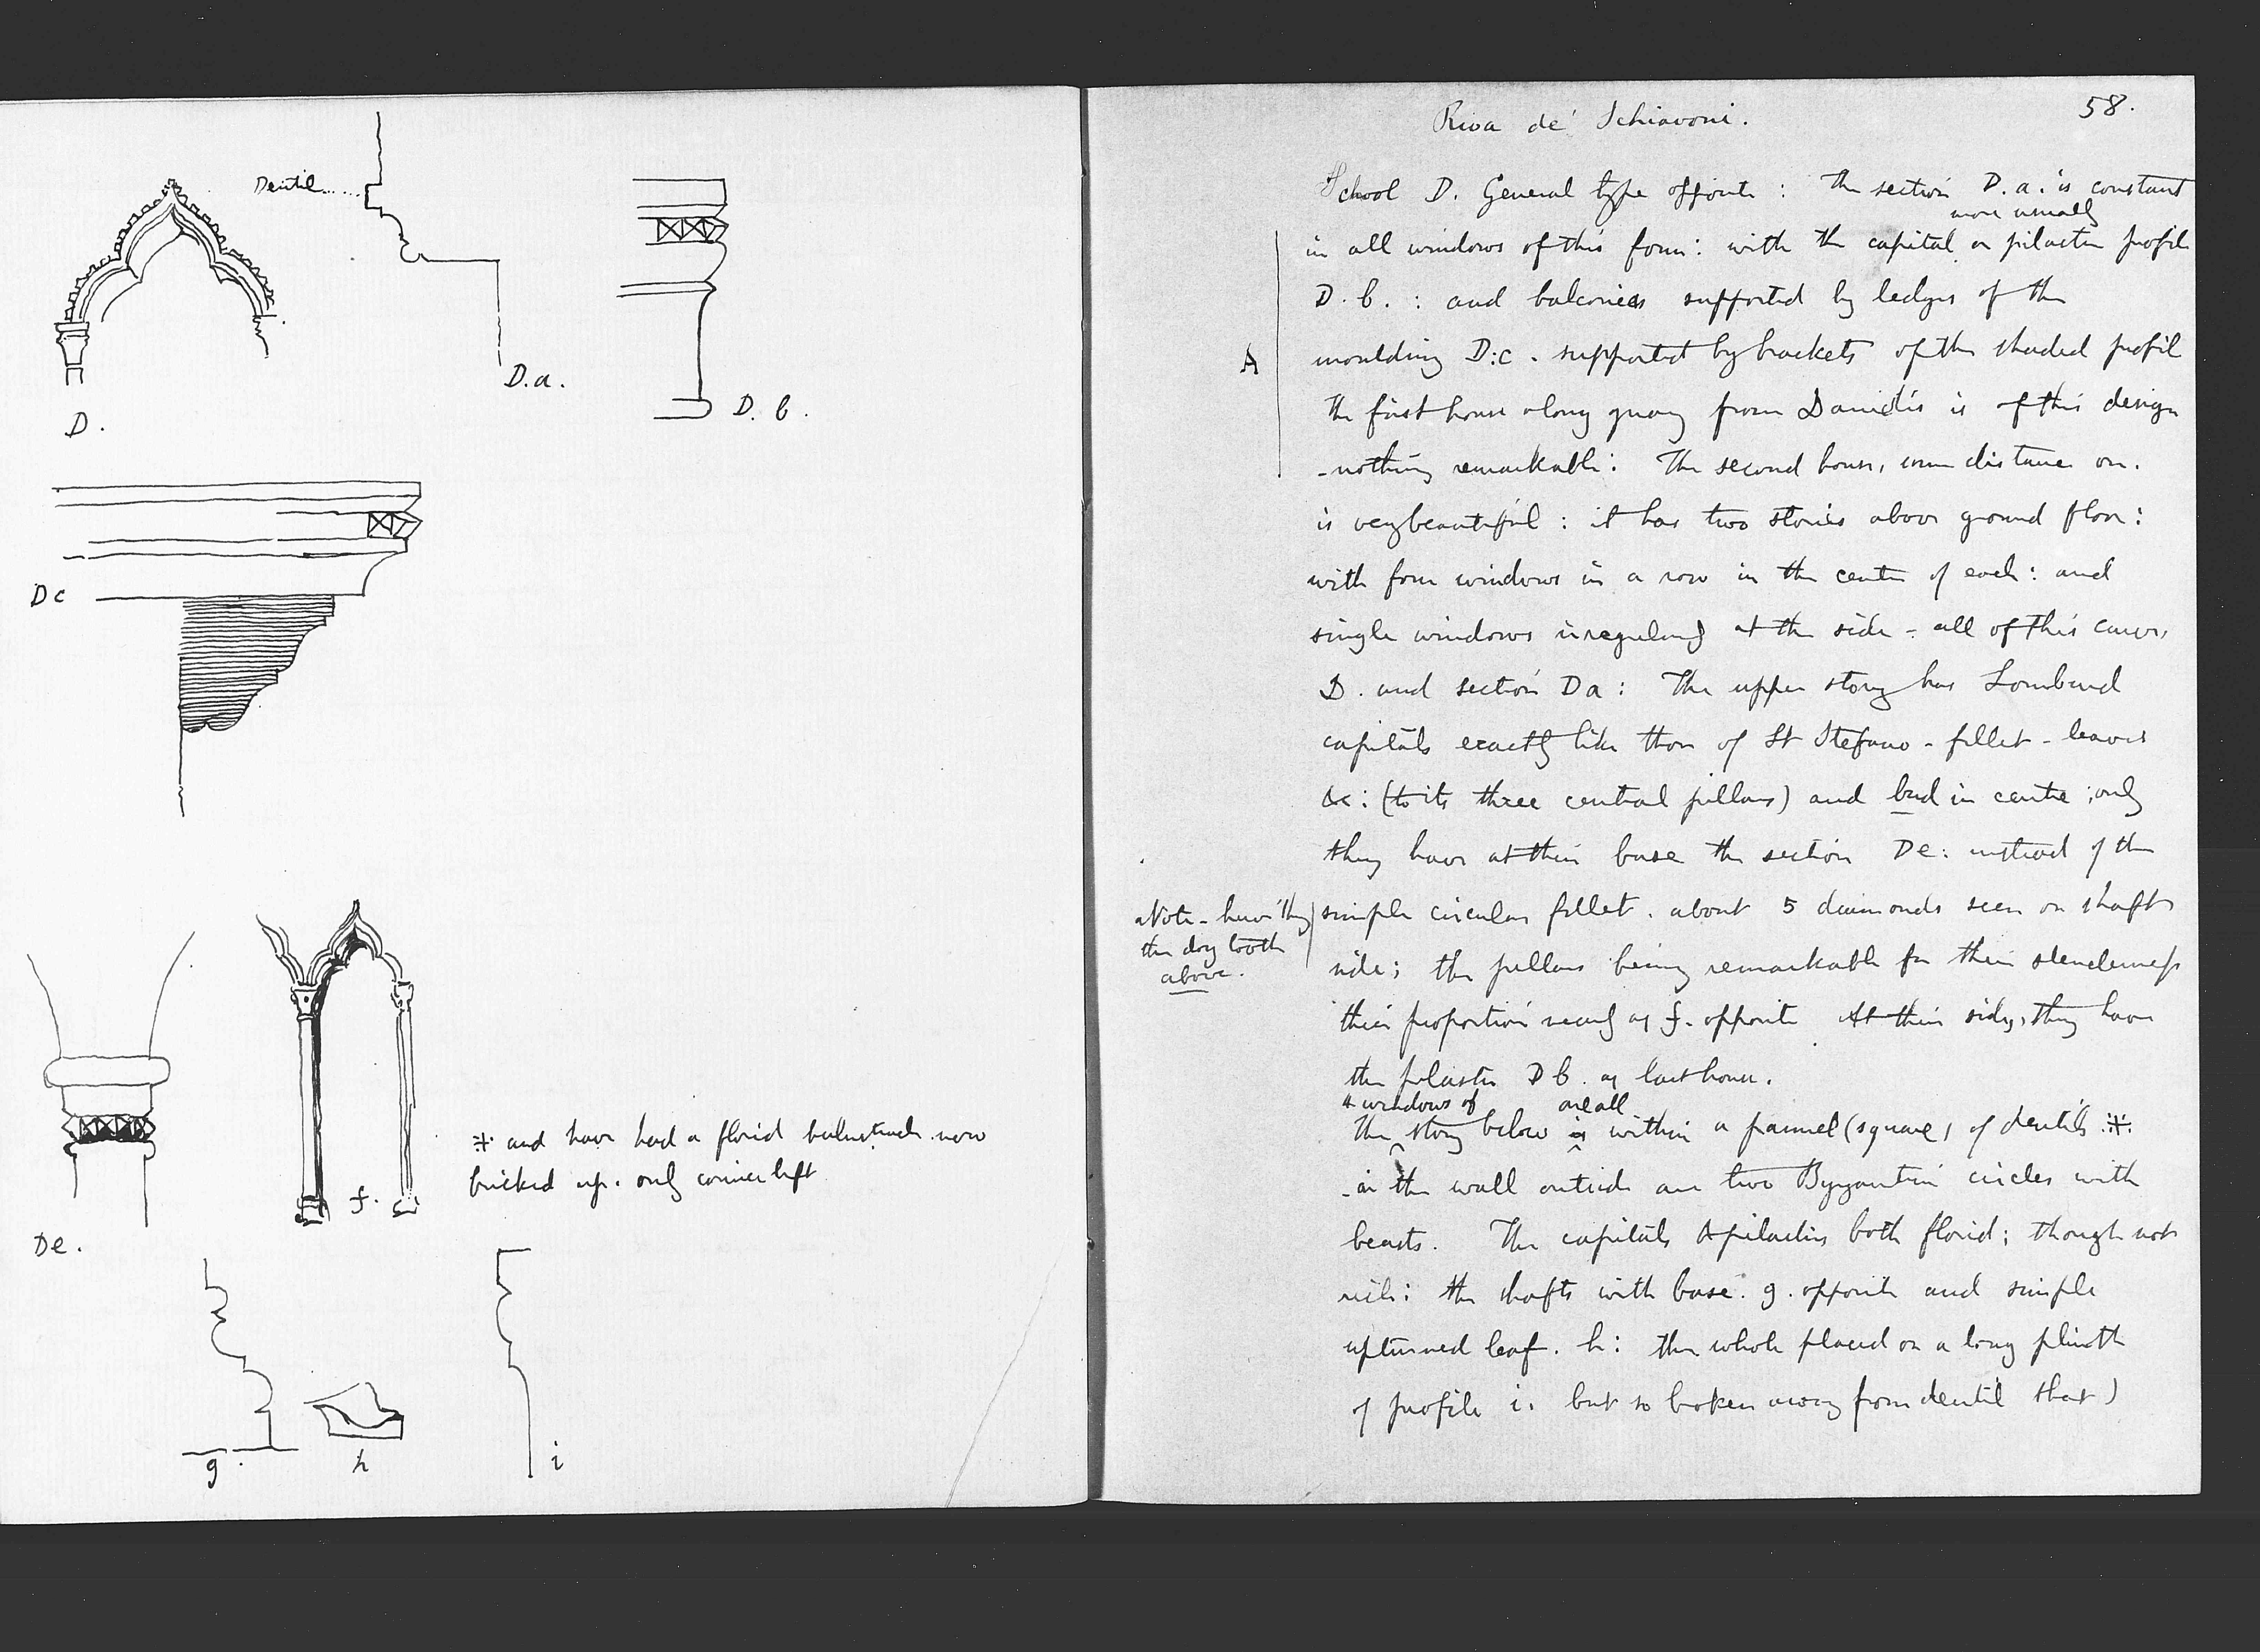 Dentil......
D.
D.a.
D. b.
Dc
De.
f.
※ and have had a florid balustrade now
bricked up. only cornice left
g.
h
i
58.
Riva de' Schiavoni.
School D. General type opposite: the section D.a. is constant
more usually
in all windows of this form: with the capital or pilaster profile
D. b. : and balconies supported by ledges of the
A
moulding D:c. supported by brackets of the shaded profile
The first house along quay from Danielis is of this design
- nothing remarkable: The second house, some distance on.
is very beautiful: it has two stories above ground floor:
with four windows in a row in the centre of each: and
single windows irregularly at the side - all of this curve,
D. and section Da: The upper story has Lombard
capitals exactly like those of St Stefano - fillet - leaves
&c: (to its three central pillars) and bud in centre; only
they have at their base the section De: instead of the
Note - have they
the dog tooth
above.
simple circular fillet. about 5 diamonds seen on shaft
side; the pillars being remarkable for their slenderness
their proportion nearly as f. opposite At their sides, they have
the pilaster D b. as last house.
4 windows of are all
The story below is within a pannel (square) of dentils ※.
- in the wall outside are two Byzantine circles with
beasts. The capitals & pilasters both florid; though not
rich: the shafts with base. g. opposite and simple
upturned leaf. h: the whole placed on a long plinth
of profile i. but so broken away from dentil that)